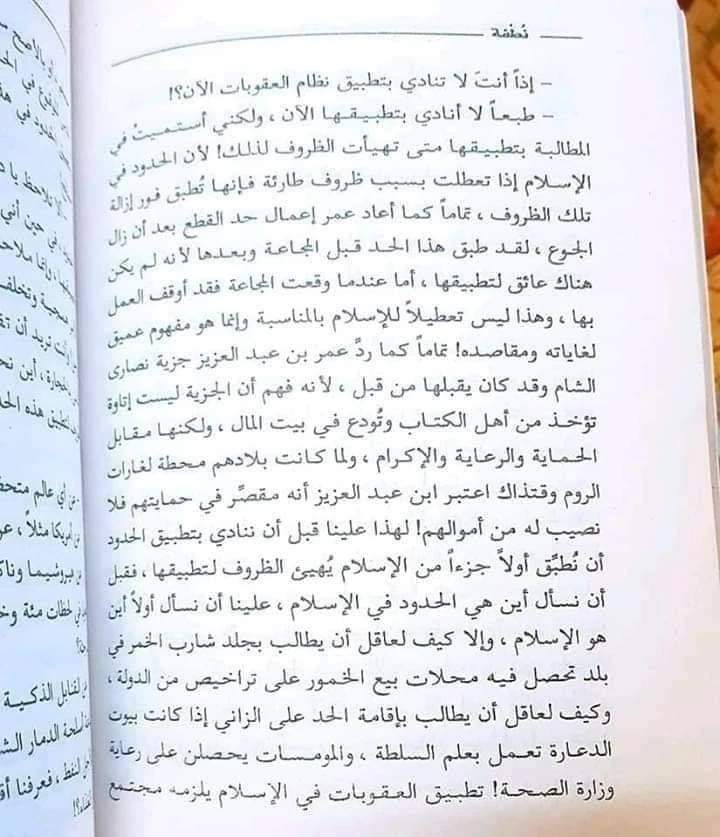 نُطْفة
- إذاً أنتَ لا تنادي بتطبيق نظام العقوبات الآن؟!
- طبعاً لا أنادي بتطبيقها الآن ، ولكني أستميتُ في
المطالبة بتطبيقها متى تهيأت الظروف لذلك! لأن الحدود في
الإسلام إذا تعطلت بسبب ظروف طارئة فإنها تُطبق فور إزالة
تلك الظروف ، تماماً كما أعاد عمر إعمال حد القطع بعد أن زال
الجوع ، لقد طبق هذا الحد قبل المجاعة وبعدها لأنه لم يكن
هناك عائق لتطبيقها ، أما عندما وقعت المجاعة فقد أوقف العمل
بها ، وهذا ليس تعطيلاً للإسلام بالمناسبة وإنما هو مفهوم عميق
لغاياته ومقاصده! تماماً كما ردَّ عمر بن عبد العزيز جزية نصارى
الشام وقد كان يقبلها من قبل ، لأنه فهم أن الجزية ليست إتاوة
تؤخذ من أهل الكتاب وتُودع في بيت المال ، ولكنها مقابل
الحماية والرعاية والإكرام ، ولما كانت بلادهم محطة لغارات
الروم وقتذاك اعتبر ابن عبد العزيز أنه مقصِّر في حمايتهم فلا
نصيب له من أموالهم! لهذا علينا قبل أن ننادي بتطبيق الحدود
أن نُطبِّق أولاً جزءاً من الإسلام يُهيئ الظروف لتطبيقها ، فقبل
أن نسأل أين هي الحدود في الإسلام ، علينا أن نسأل أولاً أين
هو الإسلام ، وإلا كيف لعاقل أن يطالب بجلد شارب الخمر في
بلد تحصل فيه محلات بيع الخمور على تراخيص من الدولة ،
وكيف لعاقل أن يطالب بإقامة الحد على الزاني إذا كانت بيوت
الدعارة تعمل بعلم السلطة ، والمومسات يحصلن على رعاية
وزارة الصحة! تطبيق العقوبات في الإسلام يلزمه مجتمع